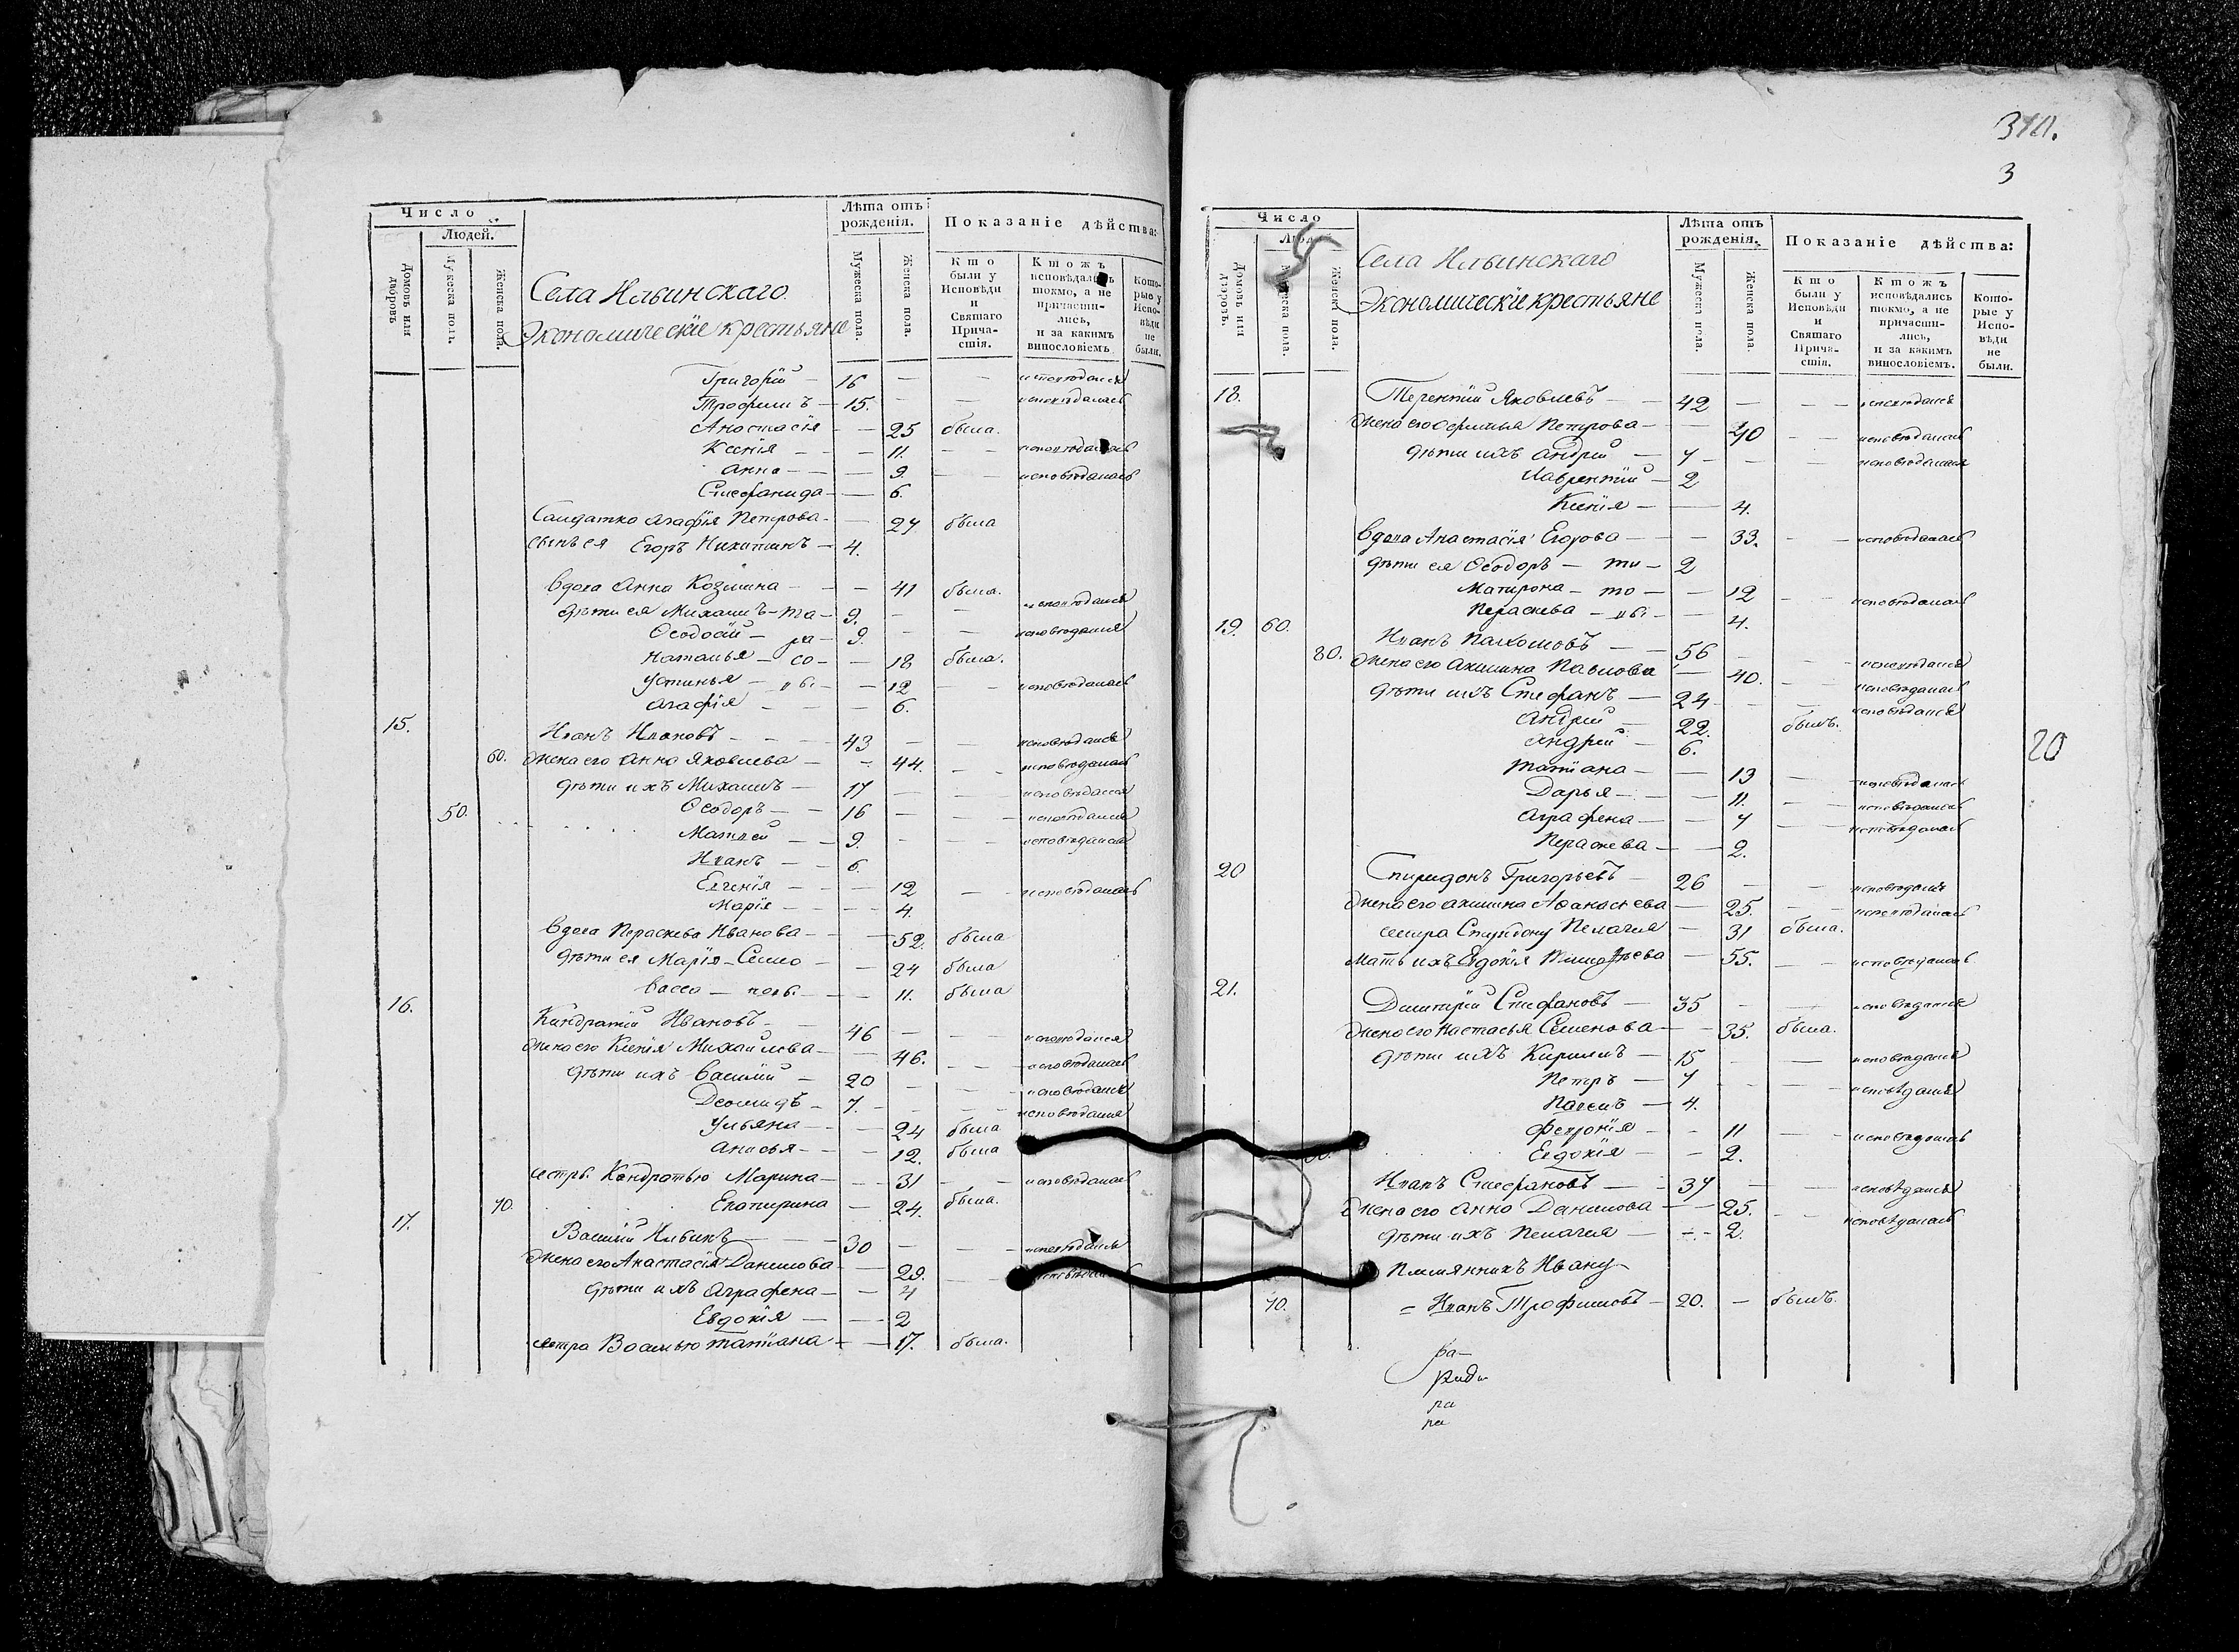 Число
Людей.
Домовъ или дворовъ
Мужеска полу.
Женска пола.
Села Ильинскаго.
Экономическіе крестьяне
Лѣта отъ рожденія.
Мужеска пола.
Женска пола.
Показаніе дѣйства:
Кто были у Исповѣди и Святаго Причастія.
Ктожъ исповѣдались токмо, а не причастились, и за какимъ винословіемъ
Которые у Исповѣди не были.
Григорій — 16 — — исповѣдался
Трофимъ — 15. — — исповѣдался
Анастасія — — 25 была.
Ксенія — — 11. — — исповѣдалась
Анна — — 9. — — исповѣдалась
Стефанида — — 6.
Салдатка Агафія Петрова — — 27 была
сынъ ея Егоръ Никитинъ — 4.
вдова Анна Козмина — — 41 была.
дѣти ея Михаилъ — та — 9. — — исповѣдался
Ѳеодосій — ра — 9. — — исповѣдался
Наталья — со — — 18 была.
Устинья — вы — — 12 — — исповѣдалась
Агафія — — — 6.
15. Иванъ Ивановъ — — 43 — — исповѣдался
60. жена его Анна Яковлева — — 44. — — исповѣдалась
дѣти ихъ Михаилъ — 17 — — исповѣдался
50. Ѳеодоръ — — 16 — — исповѣдался
Матвей — — 9. — — исповѣдался
Иванъ — — 6.
Евгенія — — 12 — — исповѣдалась
Марія — — 4.
вдова Параскева Иванова — — 52. была
дѣти ея Марія — Симо — — 24 была
Васса — новы — — 11. была
16. Кандратій Ивановъ — 46 — — исповѣдался
жена его Ксенія Михайлова — — 46. — — исповѣдалась
дѣти ихъ Василій — 20 — — исповѣдался
Деомидъ — 7. — — исповѣдался
Ульяна — — 24 была
Анисья — — 12. была
сестры Кондратью Марина — — 31 — — исповѣдалась
70. Екатирина — 24. была.
17. Василій Ильинъ — — 30 — — исповѣдался
жена его Анастасія Данилова — — 29. — — исповѣдалась
дѣти ихъ Аграфена — — 4
Евдокія — — 2
сестра Василью Татіана — — 17. была.
310.
3
Число
Людей
Домовъ или дворовъ.
Мужеска пола.
Женска пола.
Села Ильинскаго
Экономическіе крестьяне
Лѣта отъ рожденія.
Мужеска пола.
Женска пола.
Показаніе дѣйства:
Кто были у Исповѣди и Святаго Причастія.
Ктожъ исповѣдались токмо, а не причастились, и за какимъ винословіемъ.
Которые у Исповѣди не были.
18. Терентій Яковлевъ — — 42 — — исповѣдался
жена его Софинья Петрова — — 40 — — исповѣдалась
дѣти ихъ Андрей — 7 — — исповѣдался
Лаврентій — 2
Ксенія — — 4.
вдова Анастасія Егорова — — 33. — — исповѣдалась
дѣти ея Ѳеодоръ — ти — 2
Матрона — то — — 12 — — исповѣдалась
Параскева — вы — — 4.
19. 60. Иванъ Пахомовъ — — 56 — — исповѣдался
80. жена его Акилина Павлова — 40. — — исповѣдалась
дѣти ихъ Стефанъ — 24 — — исповѣдался
Андрей — 22. былъ.
Андрей — 6.
20
Татіана — — 13 — — исповѣдалась
Дарья — — 11. — — исповѣдалась
Аграфена — — 7 — — исповѣдалась
Параскева — — 2.
20 Спиридонъ Григорьевъ — 26 — — исповѣдался
жена его Акилина Афанасьева — 25. — — исповѣдалась
сестра Спиридону Пелагея — 31 была.
мать ихъ Евдокія — 55. — — исповѣдалась
21. Дмитрій Стефановъ — 35 — — исповѣдался
жена его Настасья Семенова — — 35. была.
дѣти ихъ Кирилъ — 15 — — исповѣдался
Петръ — 7 — — исповѣдался
Павелъ — 4.
Февронія — — 11 — — исповѣдалась
Евдокія — — 2.
Иванъ Стефановъ — — 37 — — исповѣдался
жена его Анна Данилова — — 25. — — исповѣдалась
дѣти ихъ Пелагея — — 2.
Племянникъ Ивану
70. = Иванъ Трофимовъ — 20. — былъ.
ра —
ра
ра